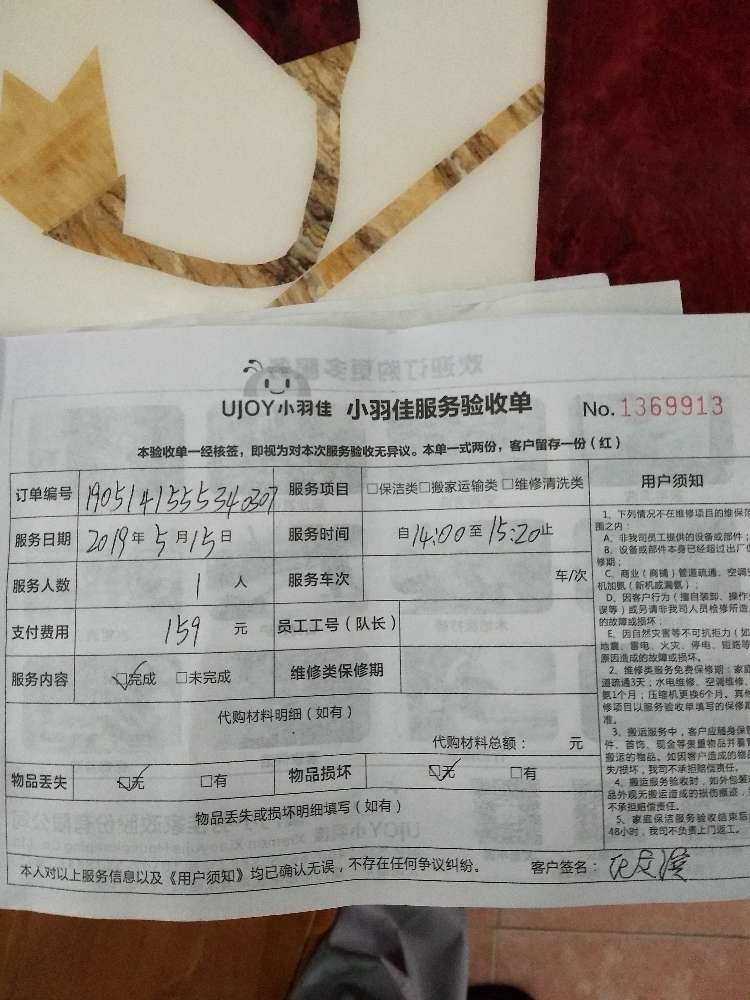 UJOY小羽佳 小羽佳服务验收单 No.1369913
本验收单一经核签，即视为对本次服务验收无异议。本单一式两份，客户留存一份（红）
订单编号 1905141555340307 服务项目 □保洁类□搬家运输类 □维修清洗类
服务日期 2019年5月15日 服务时间 自14:00至15:20止
服务人数 1 人 服务车次 车/次
支付费用 159 元 员工工号（队长）
服务内容 ☑完成 □未完成 维修类保修期
代购材料明细（如有）
代购材料总额： 元
物品丢失 ☑无 □有 物品损坏 ☑无 □有
物品丢失或损坏明细填写（如有）
本人对以上服务信息以及《用户须知》均已确认无误，不存在任何争议纠纷。 客户签名：
用户须知
1、下列情况不在维修项目的维保范
围之内：
A、非我司员工提供的设备或部件；
B、设备或部件本身已经超过出厂
修期；
C、商业（商铺）管道疏通、空调
机加氨（新机或漏氨）；
D、因客户行为（擅自装卸、操作
误等）或另请非我司人员检修所造
的故障或损坏；
E、因自然灾害等不可抗拒力（如
地震、雷电、火灾、停电、短路等
原因造成的故障或损坏。
2、维修类服务免费保修期：家庭
道疏通3天；水电维修、空调维修、
氨1个月；压缩机更换6个月。其
修项目以服务验收单填写的保修期
准。
3、搬运服务中，客户应随身保管
件、首饰、现金等贵重物品并看管
搬运的物品。如因客户造成的物品
失/损坏，我司不承担赔偿责任。
4、搬运服务验收时，如外包装
品外观无搬运造成的损伤痕迹，
不承担赔偿责任。
5、家庭保洁服务验收结束后
48小时，我司不负责上门返工。